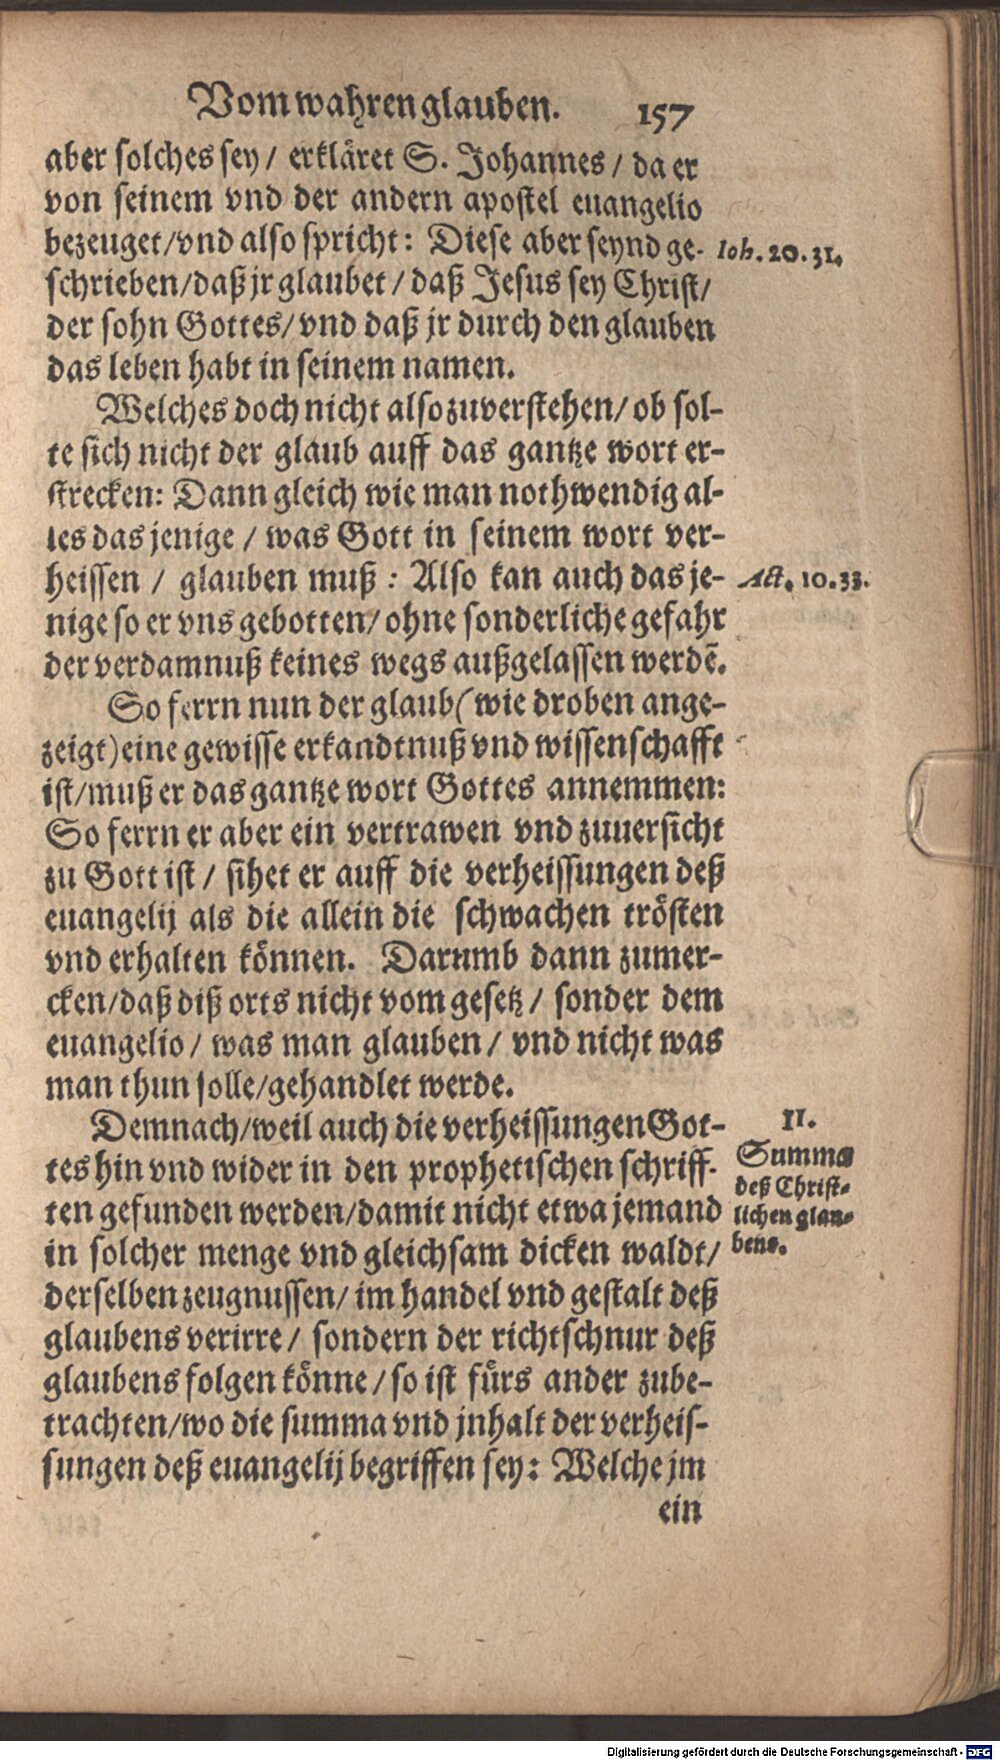 Vom wahren glauben. 157
aber solches sey / erkläret S. Johannes / da er
von seinem vnd der andern apostel euangelio
bezeuget/vnd also spricht: Diese aber seynd ge-
Ioh. 20. 31.
schrieben/daß jr glaubet / daß Jesus sey Christ/
der sohn Gottes/vnd daß jr durch den glauben
das leben habt in seinem namen.
Welches doch nicht also zuverstehen/ ob sol-
te sich nicht der glaub auff das gantze wort er-
strecken: Dann gleich wie man nothwendig al-
les das jenige / was Gott in seinem wort ver-
heissen / glauben muß : Also kan auch das je-
Act. 10. 33.
nige so er vns gebotten/ ohne sonderliche gefahr
der verdamnuß keines wegs außgelassen werdẽ.
So ferrn nun der glaub (wie droben ange-
zeigt) eine gewisse erkandtnuß vnd wissenschafft
ist/muß er das gantze wort Gottes annemmen:
So ferrn er aber ein vertrawen vnd zuuersicht
zu Gott ist / sihet er auff die verheissungen deß
euangelij als die allein die schwachen trösten
vnd erhalten können. Darumb dann zumer-
cken/daß diß orts nicht vom gesetz / sonder dem
euangelio / was man glauben / vnd nicht was
man thun solle/gehandlet werde.
Demnach/weil auch die verheissungen Got-
tes hin vnd wider in den prophetischen schriff-
ten gefunden werden/damit nicht etwa jemand
in solcher menge vnd gleichsam dicken waldt/
derselben zeugnussen/ im handel vnd gestalt deß
glaubens verirre / sondern der richtschnur deß
glaubens folgen könne / so ist fürs ander zube-
trachten/wo die summa vnd jnhalt der verheis-
sungen deß euangelij begriffen sey: Welche jm
ein
II.
Summa
deß Christ-
lichen glau-
bens.
Digitalisierung gefördert durch die Deutsche Forschungsgemeinschaft - DFG